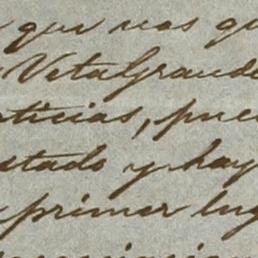 que nos qu
Vetagrande
oticias, pue
stado y hay
primer lug